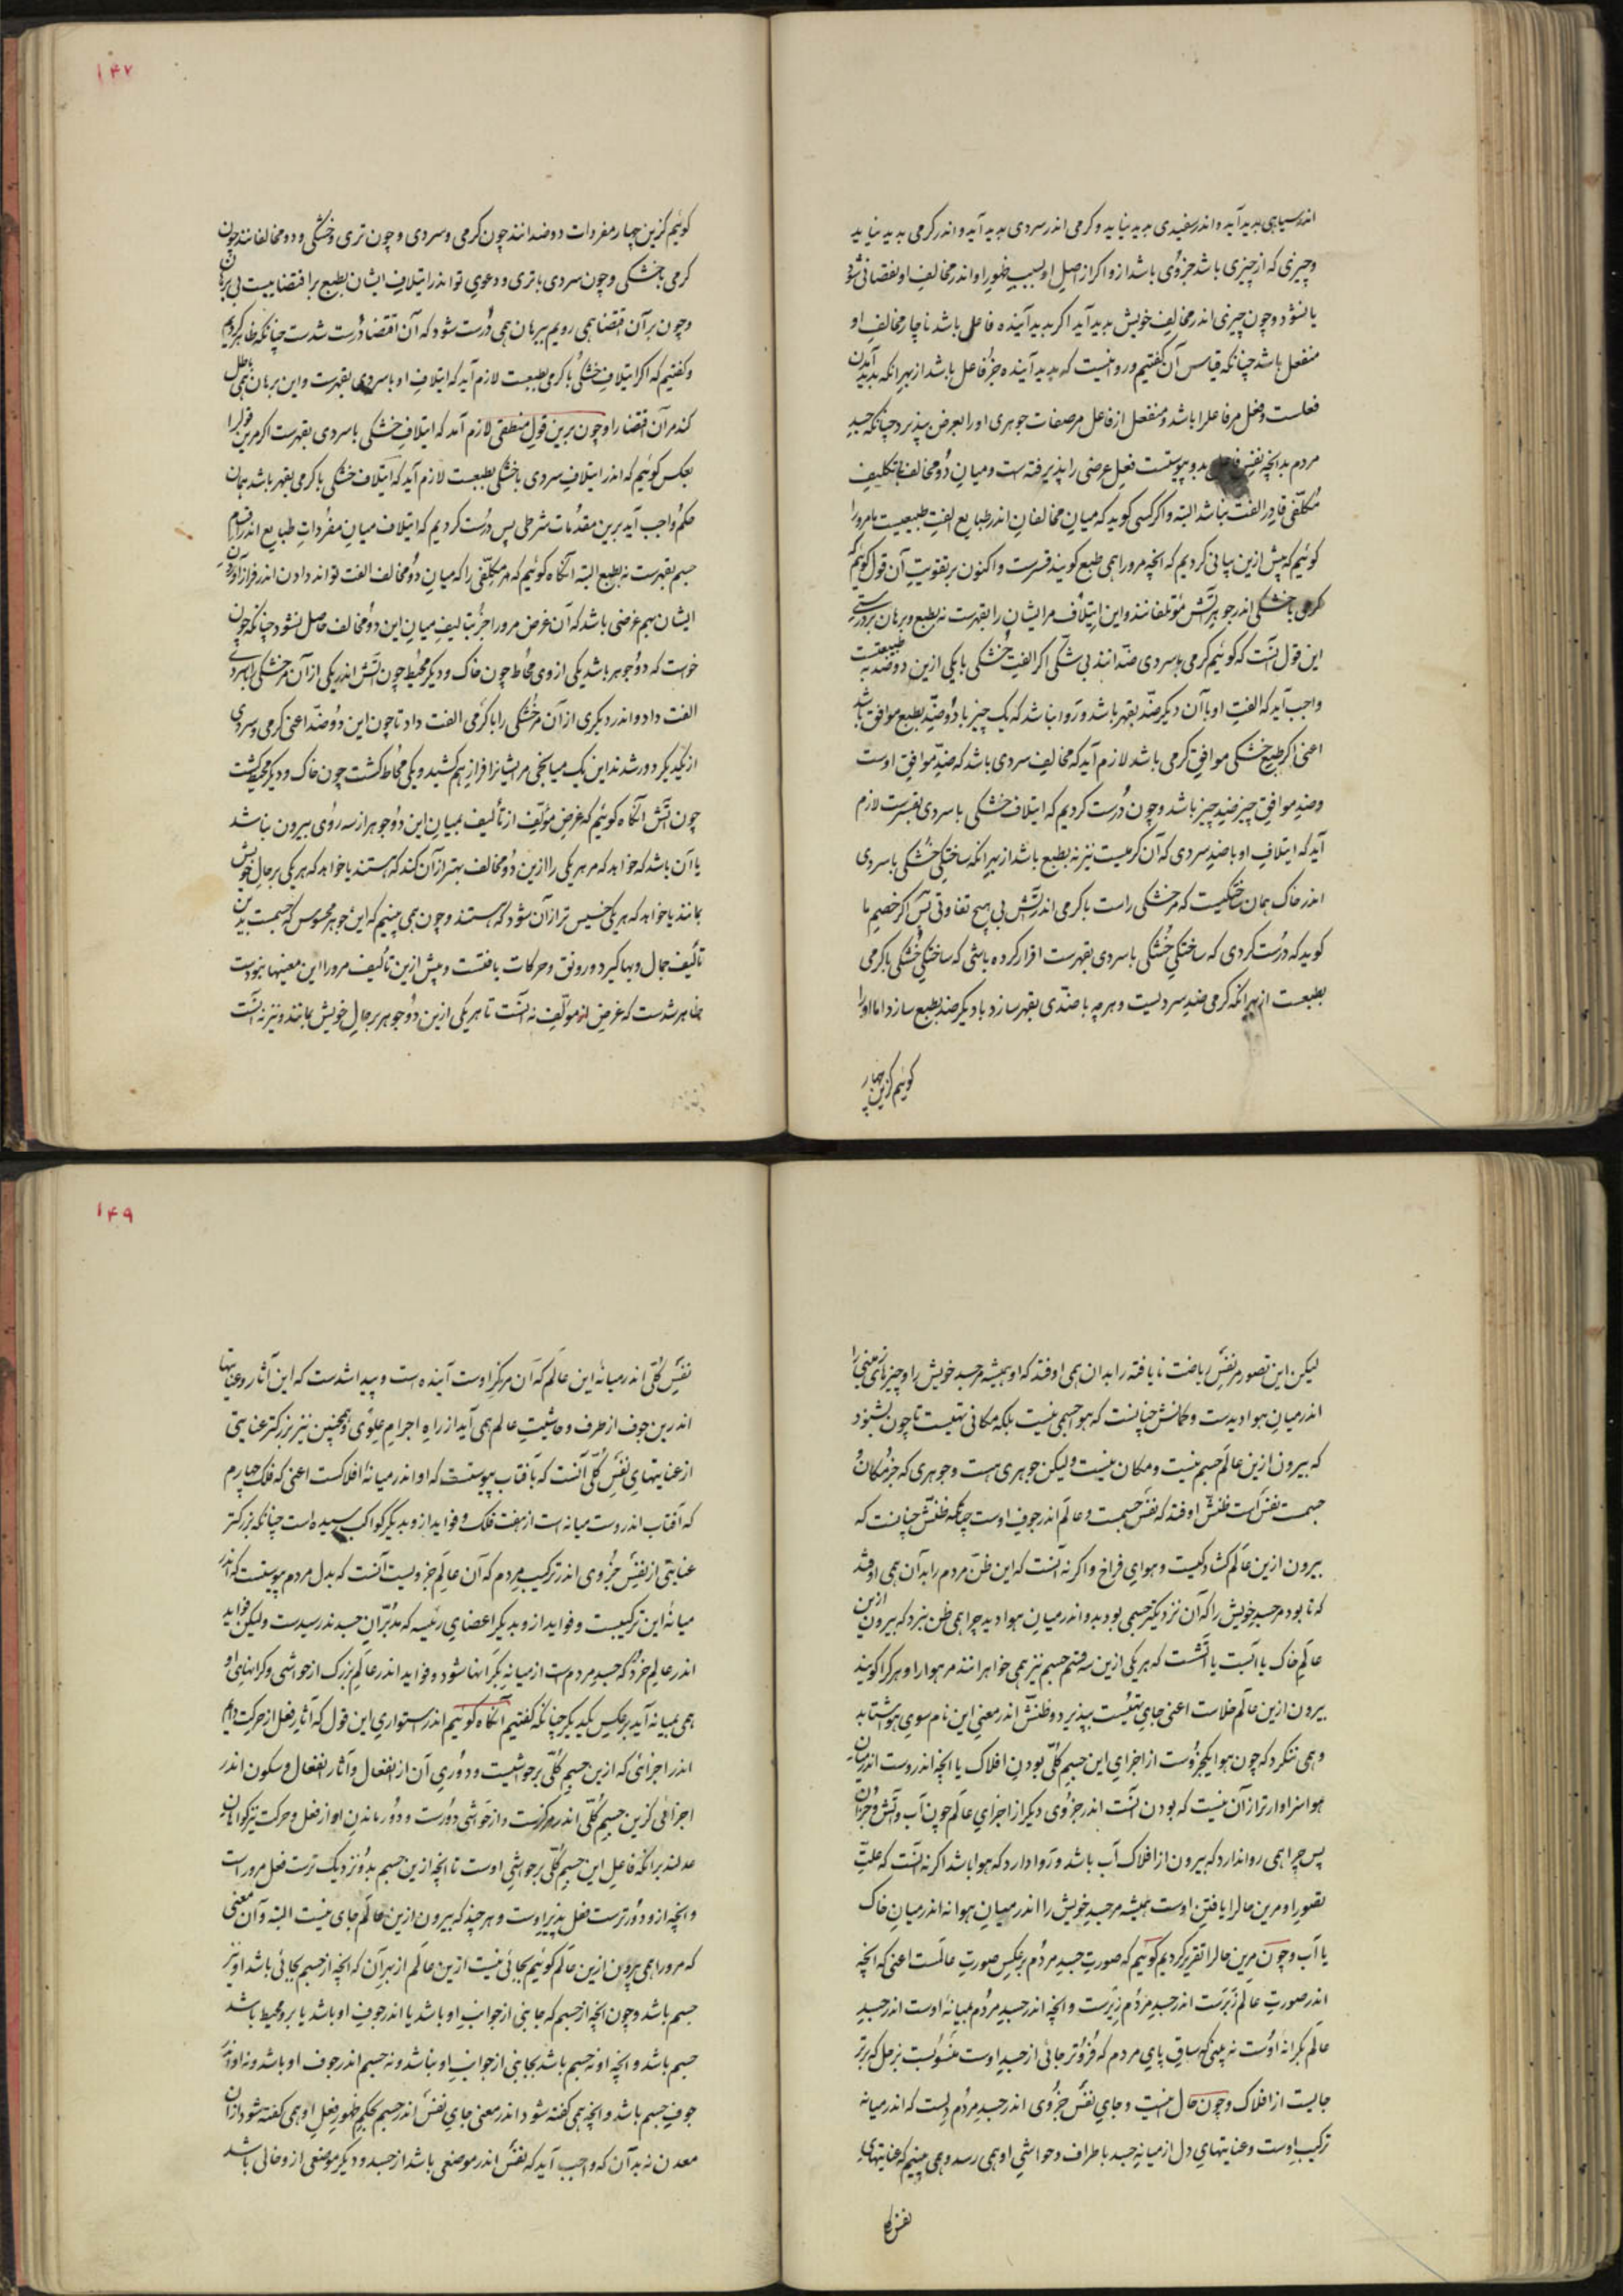 اندر سیاهی بدید آید و اندر سفیدی بدید نیاید و گرمی اندر سردی بدید آید و اندر گرمی بدید نیاید
و چیزی که از چیزی باشد جزوی باشد ازو اگر از اصل او بسبب ظهور او اندر مخالف او نقصانی شود
یا نشود و چون چیزی اندر مخالف خویش بدید آید اگر بدید آینده فاعل باشد ناچار مخالف او
منفعل باشد چنانکه قیاس آن گفتیم و روا نیست که بدید آینده جز فاعل باشد از بهر آنکه بدید آمدن
فعلست و فعل مر فاعل را باشد و منفعل از فاعل مر صفات جوهری او را بعرض بپذیرد چنانکه جسد
مردم بدانچه نفس بدو پیوستست فعل عرضی را پذیرفته ست و میان دو مخالف بتکلیف
مکلفی قادر الفت نباشد البته و اگر کسی گوید که میان مخالفان اندر طبایع الفت طبیعیست ما مر او را
گوئیم که پیش ازین بیانی کردیم که آنچه مر او را همی طبع گویند قسرست و اکنون بر تقویت آن قول گوئیم که
گرمی با خشکی اندر جوهر آتش مؤتلفانند و این ایتلاف مر ایشان را بقهرست نه بطبع و برهان بر درستی
این قول آنست که گوئیم گرمی و سردی ضدانند بی شکی اگر الفت خشکی با یکی ازین دو ضد به طبیعتست
واجب آید که الفت او با آن دیگر ضد بقهر باشد و روا نباشد که یک چیز با دو ضد بطبع موافق باشد
اعنی اگر طبع خشکی موافق گرمی باشد لازم آید که مخالف سردی باشد که ضد موافق اوست
و ضد موافق چیز ضد چیز باشد و چون درست کردیم که ایتلاف خشکی با سردی بقسرست لازم
آید که ایتلاف او با ضد سردی که آن گرمیست نیز نه بطبع باشد از بهر آنکه ساختگی خشکی با سردی
اندر خاک همان ساختگیست که مر خشکی راست با گرمی اندر آتش بی هیچ تفاوتی پس اگر خصم ما
گوید که درست کردی که ساختگی خشکی با سردی بقهرست اقرار کرده باشی که ساختگی خشکی با گرمی
بطبعست از بهر آنکه گرمی ضد سردیست و هر چه با ضدی بقهر سازد با دیگر ضد بطبع سازد اما او را
گوئیم کزین چهار
۱۴۷
گوئیم کزین چهار مفردات دو ضدانند چون گرمی و سردی و چون تری و خشکی و دو مخالفانند چون
گرمی با خشکی و چون سردی با تری و دعوی تو اندر ایتلاف ایشان بطبع بر اقتضاییست بی برهان
و چون بر آن اقتضا همی رویم ببرهان همی درست شود که آن اقتضا درست شدست چنانکه ظاهر کردیم
و گفتیم که اگر ایتلاف خشکی با گرمی بطبعست لازم آید که ایتلاف او با سردی بقهرست و این برهان همی باطل
کند مر آن اقتضا را و چون برین قول منطقی لازم آمد که ایتلاف خشکی با سردی بقهرست اگر مرین قول را
بعکس گوئیم که اندر ایتلاف سردی با خشکی بطبعست لازم آید که ایتلاف خشکی با گرمی بقهر باشد بهمان
حکم واجب آید برین مقدمات شرطی پس درست کردیم که ایتلاف میان مفردات طبایع اندر اقسام
جسم بقهرست نه بطبع البته آنگاه گوئیم که هر مکلفی را که میان دو مخالف الفت تواند دادن اندر فراز آوردن
ایشان بهم غرضی باشد که آن غرض مر او را جز بتالیف میان این دو مخالف حاصل نشود چنانکه چون
خواست که دو جوهر باشد یکی از وی محاط چون خاک و دیگر محیط چون آتش اندر یکی از آن مر خشکی را با سردی
الفت داد و اندر دیگری از آن مر خشکی را با گرمی الفت داد تا چون این دو ضد اعنی گرمی و سردی
از یکدیگر دور شدند این یک میانجی مر ایشانرا فراز هم کشید و یکی محاط گشت چون خاک و دیگر محیط گشت
چون آتش آنگاه گوئیم که غرض مؤلف از تألیف بمیان این دو جوهر از سه روی بیرون نباشد
یا آن باشد که خواهد که مر هر یکی را ازین دو مخالف بهتر از آن کند که هستند یا خواهد که هر یکی بر حال خویش
بمانند یا خواهد که هر یکی خسیس تر از آن شود که هستند و چون همی بینیم که این جوهر محسوس که جسمست بدین
تألیف جمال و بها گیرد و رونق و حرکات یافتست و پیش ازین تألیف مر او را این معنیها نبودست
ظاهر شدست که غرض از مؤلف نه آنست تا هر یکی ازین دو جوهر بر حال خویش بمانند و نیز نه آنست
لیکن این تصور مر نفس ریاضت نایافته را بدان همی اوفتد که او همیشه مر جسد خویش را و چیزهای زمینی را
اندر میان هوا دیدست و گمانش چنانست که هوا جسمی نیست بلکه مکانی تهیست تا چون بشنود
که بیرون ازین عالم جسم نیست و مکان نیست ولیکن جوهری هست و جوهری که جز مکان و
جسمست نفس است ظنش اوفتد که نفس جسمست و عالم اندر جوف اوست چنانکه ظنش چنانست که
بیرون ازین عالم گشادگیست و هوای فراخ و اگر نه آنست که این ظن مردم را بدان همی اوفتد
که تا بود مر جسد خویش را که آن نزدیکتر جسمی بود بدو اندر میان هوا دید چرا همی ظن نبرد که بیرون ازین
عالم خاک یا آبست یا آتشست که هر یکی ازین سه قسم جسم نیز همی خواهرانند مر هوا را و هر گه او را گویند
بیرون ازین عالم خلاست اعنی جای تهیست بپذیرد و ظنش اندر معنی این نام سوی هوا شتابد
و همی ننگرد که چون هوا یکجزوست از اجزای این جسم کل بودن افلاک با آنچه اندروست اندر میان
هوا سزاوارتر از آن نیست که بودن آنست اندر جزوی دیگر از اجزای عالم چون آب و آتش و جز آن
پس چرا همی روا ندارد که بیرون از افلاک آب باشد و روا دارد که هوا باشد اگر نه آنست که علت
تصور او مرین حال را یافتن اوست همیشه مر جسد خویش را اندر میان هوا نه اندر میان خاک
یا آب و چون مرین حال را تقریر کردیم گوئیم که صورت جسد مردم بر عکس صورت عالمست اعنی که آنچه
اندر صورت عالم زبرست اندر جسد مردم زیرست و آنچه اندر جسد مردم بمیانه اوست اندر جسد
عالم بکرانه اوست نه بینی که ساق پای مردم که فروتر جائی از جسد اوست منسوبست بزحل که برتر
جایست از افلاک و چون حال اینست و جای نفس جزوی اندر جسد مردم دلست که اندر میانه
ترکیب اوست و عنایتهای دل از میانه جسد باطراف و حواشی او همی رسد و همی بینیم که عنایتهای
نفس کل
۱۴۹
نفس کلی اندر میانه این عالم که آن مرکز اوست آینده است و پیدا شدست که این آثار و عنایتها
اندرین جوف از طرف و حاشیت عالم همی آید از راه اجرام علوی و همچنین نیز بزرگتر عنایتی
از عنایتهای نفس کلی آنست که بآفتاب پیوستست که او اندر میانه افلاکست اعنی که فلک چهارم
که آفتاب اندروست میانه است از هفت فلک و فواید ازو بدیگر کواکب رسیده است چنانکه بزرگتر
عنایتی از نفس جزوی اندر ترکیب مردم که آن عالم جزویست آنست که بدل مردم پیوستست که اندر
میانه این ترکیبست و فواید ازو بدیگر اعضای رئیسه که مدبران جسدند رسیدست ولیکن فواید
اندر عالم خرد که جسد مردمست از میانه بکرانها شود و فواید اندر عالم بزرگ از حواشی و کرانهای او
همی بمیانه آید بر عکس یکدیگر چنانکه گفتیم آنگاه گوئیم اندر استواری این قول که آثار فعل از حرکت دایم
اندر اجزائی که ازین جسم کلی بر حواشیست و دوری آن از انفعال و آثار انفعال و سکون اندر
اجزائی کزین جسم کلی اندر مرکزست و از حواشی دورست و دور ماندن او از فعل و حرکت نیز گواهان
عدلند بر آنکه فاعل این جسم کلی بر حواشی اوست تا آنچه ازین جسم بدو نزدیک ترست فعل مر او راست
و آنچه ازو دورترست فعل پذیر اوست و هر چند که بیرون ازین عالم جای نیست البته و آن معنی
که مر او را همی بیرون ازین عالم گوئیم بجائی نیست ازین عالم از بهر آن که آنچه از جسم بجائی باشد او نیز
جسم باشد و چون آنچه از جسم که جانبی از جوانب او باشد یا اندر جوف او باشد یا برو محیط باشد
جسم باشد و آنچه او نه جسم باشد بجانبی از جوانب او نباشد و نه جسم اندر جوف او باشد و نه او اندر
جوف جسم باشد و آنچه همی گفته شود اندر معنی جای نفس اندر جسم بحکم ظهور فعل او همی گفته شود از آن
معدن نه بدآن که واجب آید که نفس اندر موضعی باشد از جسد و دیگر موضعی ازو خالی باشد